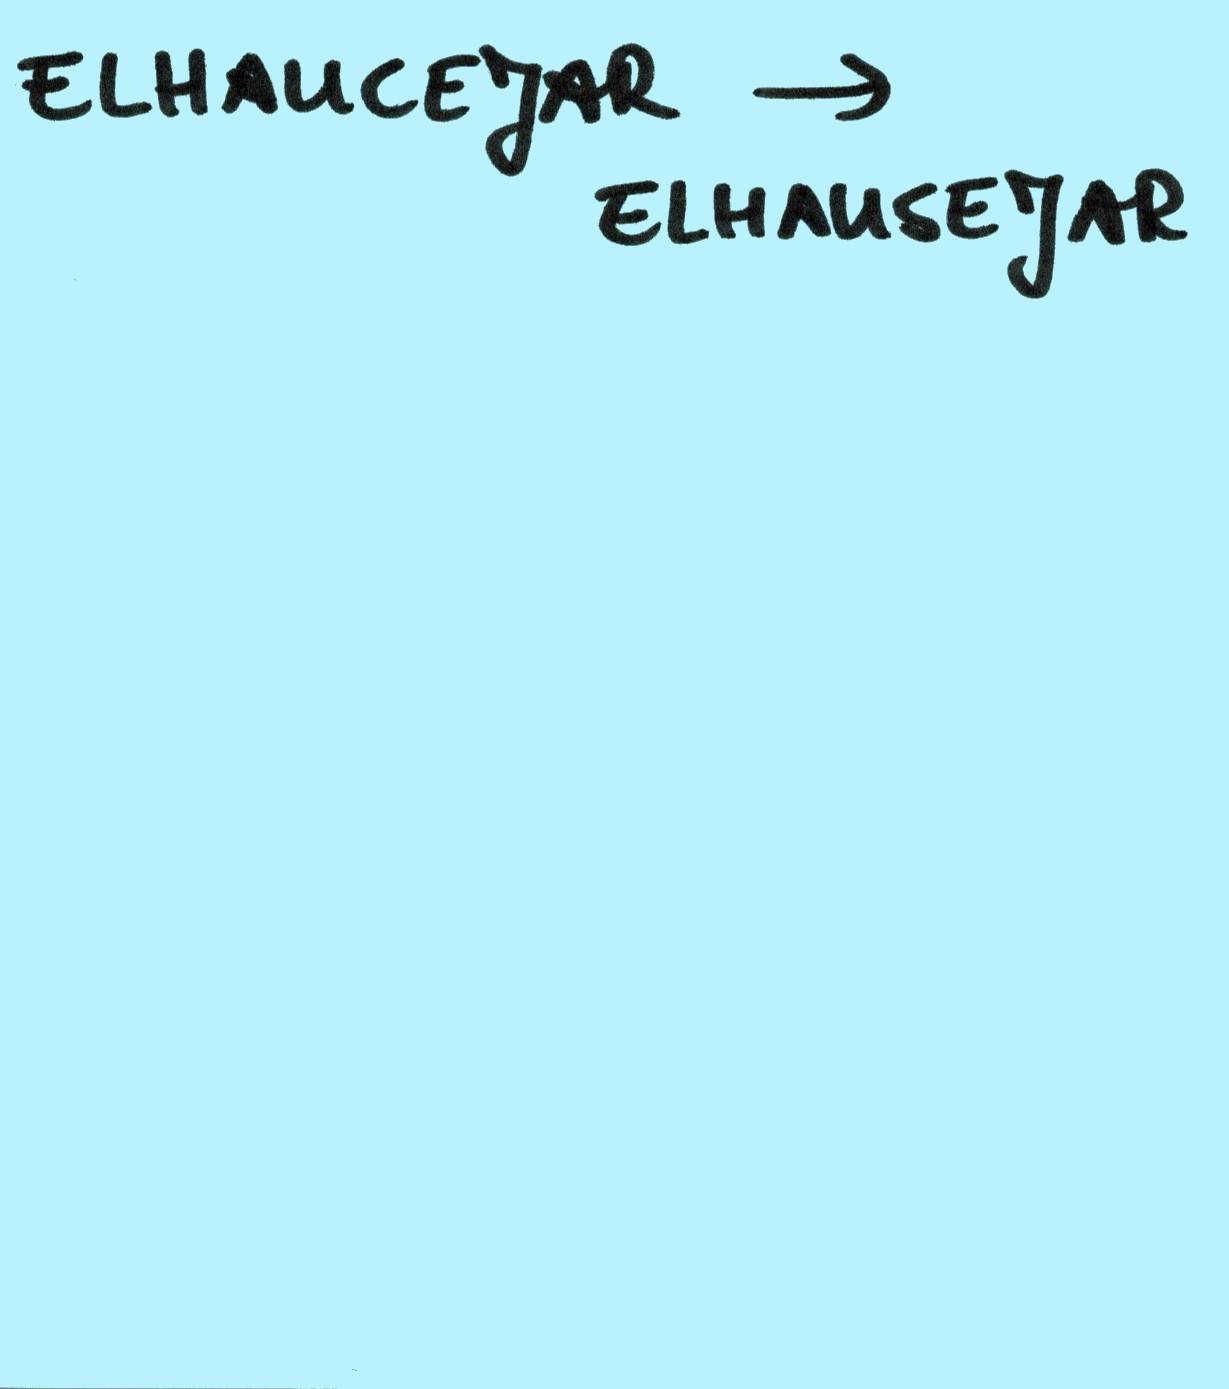 ELHAUCEJAR →
ELHAUSEJAR